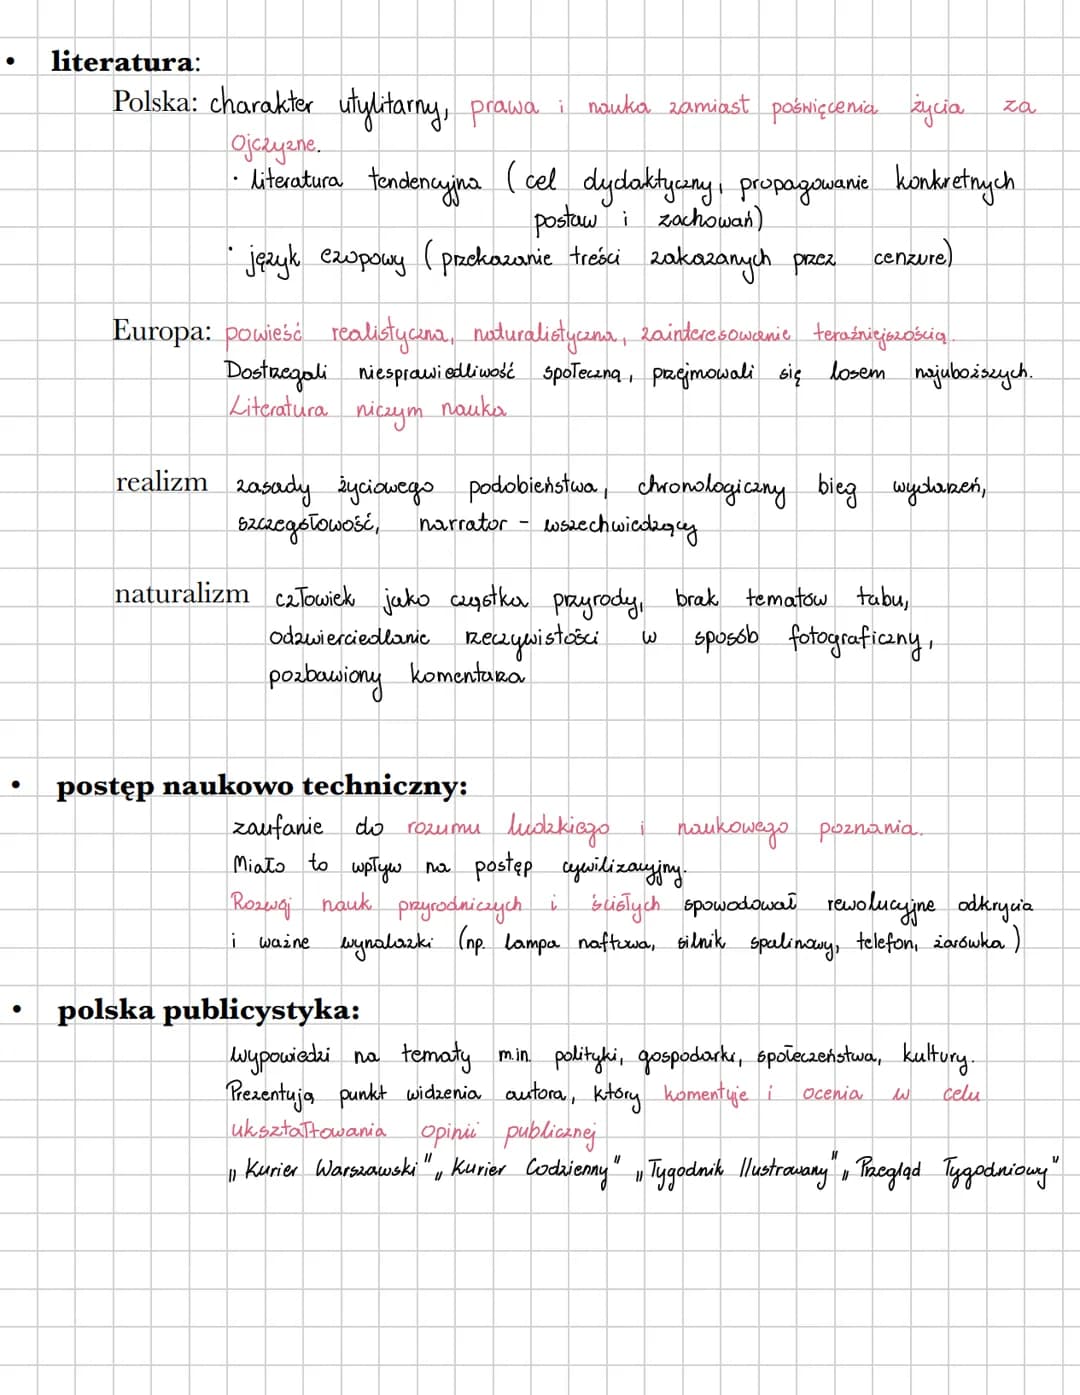 • literatura:
Polska: charakter utylitarny, prawa i nauka zamiast poświęcenia życia za
Ojczyzne.
· literatura tendencyjna (cel dydaktyczny, propagowanie konkretnych
postaw i zachowań)
· język ezopowy (przekazanie treści zakazanych przez cenzure)
Europa: powieść realistyczna, naturalistyczna, zainteresowanie teraźniejszością.
Dostrzegali niesprawiedliwość społeczną, przejmowali się losem najuboższych.
Literatura niczym nauka
realizm zasady życiowego podobieństwa, chronologiczny bieg wydarzeń,
szczegółowość, narrator - wszechwiedzący
naturalizm człowiek jako cząstka przyrody, brak tematów tabu,
odzwierciedlanie rzeczywistości w sposób fotograficzny,
pozbawiony komentarza
• postęp naukowo techniczny:
zaufanie do rozumu ludzkiego i naukowego poznania.
Miało to wpływ na postęp cywilizacyjny.
Rozwój nauk przyrodniczych i ścisłych spowodował rewolucyjne odkrycia
i ważne wynalazki (np. lampa naftowa, silnik spalinowy, telefon, żarówka)
• polska publicystyka:
Wypowiedzi na tematy m.in. polityki, gospodarki, społeczeństwa, kultury.
Prezentują punkt widzenia autora, który komentuje i ocenia w celu
ukształtowania opinii publicznej
„Kurier Warszawski" „Kurier Codzienny" „Tygodnik Ilustrowany" „Przegląd Tygodniowy"